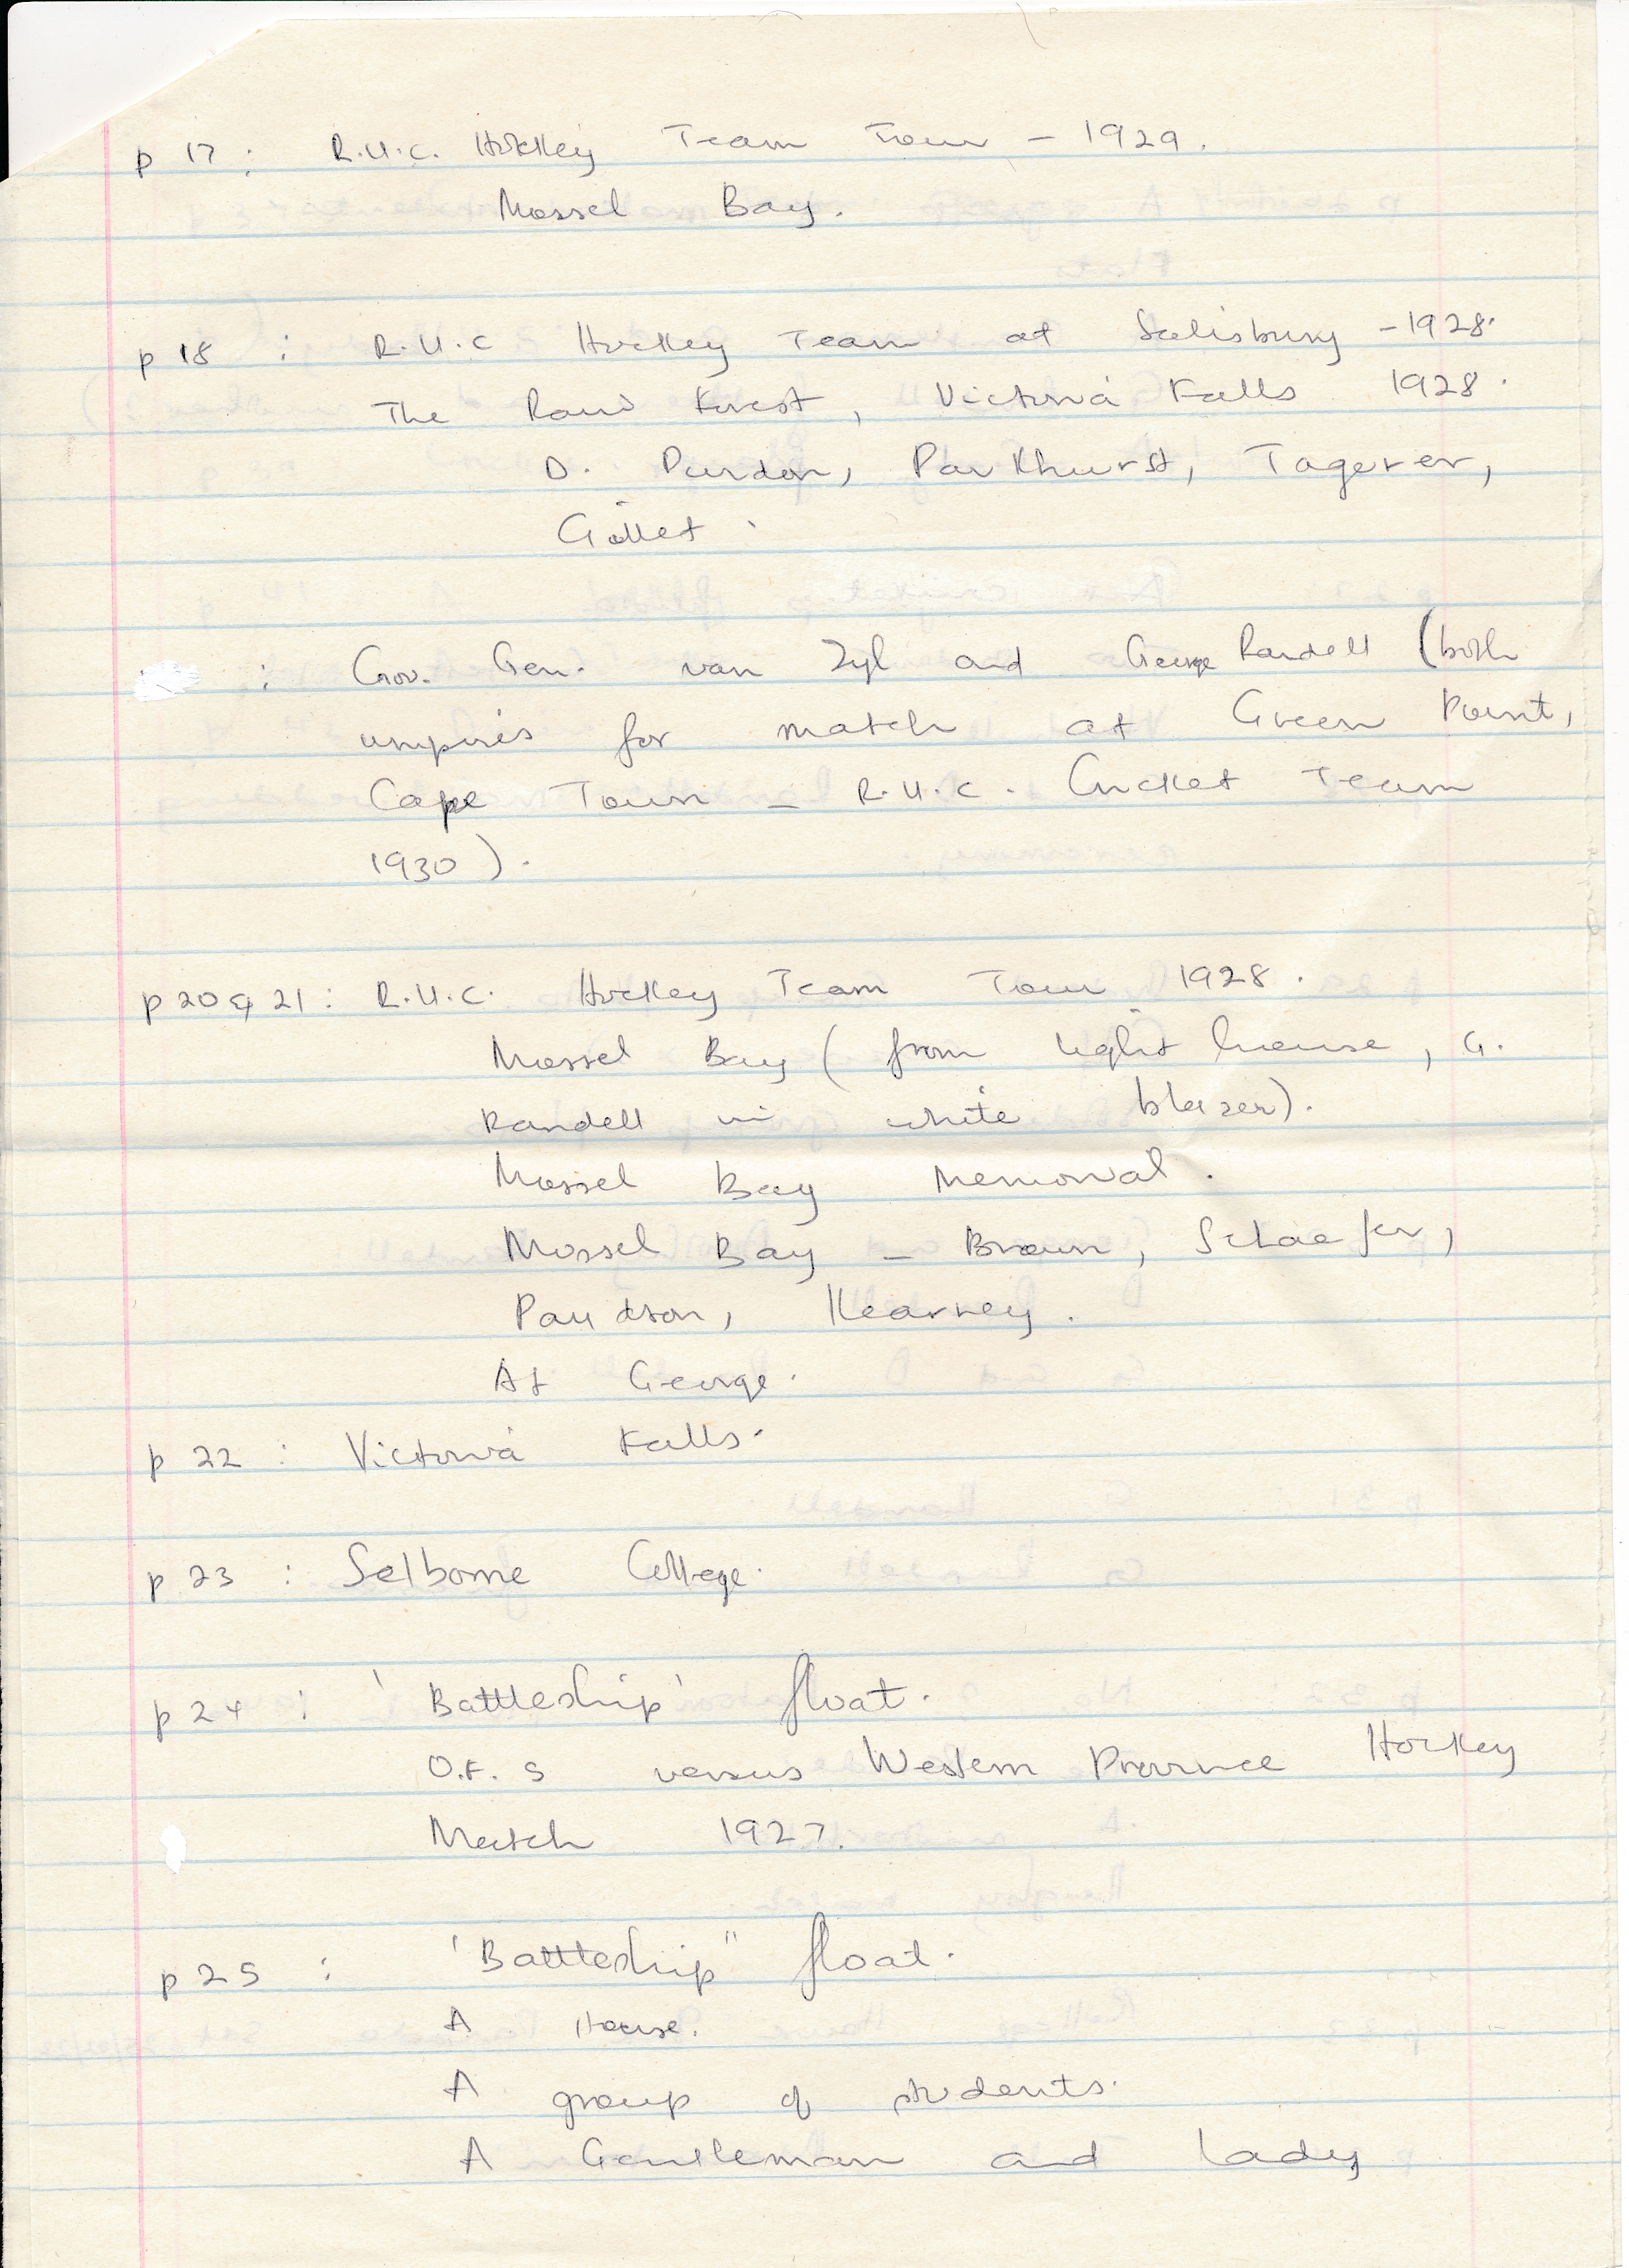 p 17 : R.U.C. Hockey Team Tour - 1929.
Mossel Bay.
p 18 : R.U.C Hockey Team at Salisbury - 1928.
The Rain Forest, Victoria Falls 1928.
D. Purdon, Parkhurst, Tagerer,
Gillet.
: Gov. Gen. van Zyl and George Randell (both
umpires for match at Green Point,
Cape Town - R.U.C. Cricket Team
1930).
p 20 & 21 : R.U.C. Hockey Team Tour 1928.
Mossel Bay (from light house, G.
Randell in white blazer).
Mossel Bay Memorial.
Mossel Bay - Brown, Schaefer,
Kearney.
At George.
p 22 : Victoria Falls.
p 23 : Selborne College.
p 24 : 'Battleship' float.
O.F.S versus Western Province Hockey
Match 1927.
p 25 : 'Battleship" float.
A House.
A group of students.
A Gentleman and Lady